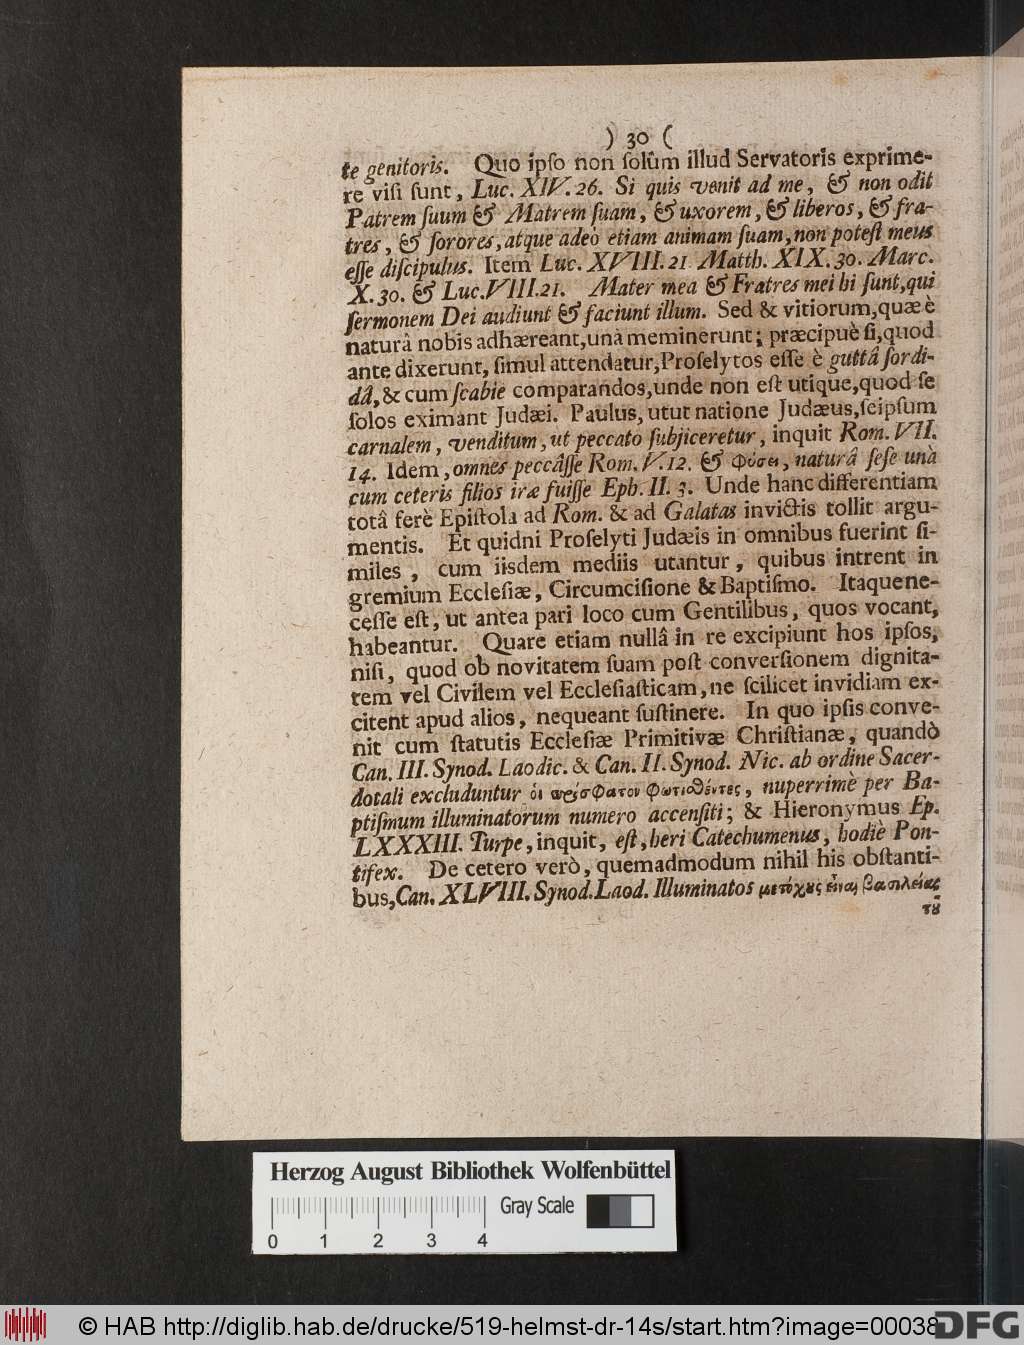 ) 30 (
te genitoris. Quo ipſo non ſolûm illud Servatoris exprime-
re viſi ſunt, Luc. XIV. 26. Si quis venit ad me, & non odit
Patrem ſuum & Matrem ſuam, & uxorem, & liberos, & fra-
tres, & ſorores, atque adeò etiam animam ſuam, non poteſt meus
eſſe diſcipulus. Item Luc. XVIII. 21. Matth. XIX. 30. Marc.
X. 30. & Luc. VIII. 21. Mater mea & Fratres mei hi ſunt, qui
ſermonem Dei audiunt & faciunt illum. Sed & vitiorum, quæ è
naturâ nobis adhæreant, unà meminerunt; præcipuè ſi, quod
ante dixerunt, ſimul attendatur, Proſelytos eſſe è guttâ ſordi-
dâ, & cum ſcabie comparandos, unde non eſt utique, quod ſe
ſolos eximant Judæi. Paulus, utut natione Judæus, ſeipſum
carnalem, venditum, ut peccato ſubjiceretur, inquit Rom. VII.
14. Idem, omnes peccâſſe Rom. V. 12. & φύσει, naturâ ſeſe unà
cum ceteris filios iræ fuiſſe Eph. II. 3. Unde hanc differentiam
totâ ferè Epiſtola ad Rom. & ad Galatas invictis tollit argu-
mentis. Et quidni Proſelyti Judæis in omnibus fuerint ſi-
miles, cum iisdem mediis utantur, quibus intrent in
gremium Eccleſiæ, Circumciſione & Baptiſmo. Itaque ne-
ceſſe eſt, ut antea pari loco cum Gentilibus, quos vocant,
habeantur. Quare etiam nullâ in re excipiunt hos ipſos,
niſi, quod ob novitatem ſuam poſt converſionem dignita-
tem vel Civilem vel Eccleſiaſticam, ne ſcilicet invidiam ex-
citent apud alios, nequeant ſuſtinere. In quo ipſis conve-
nit cum ſtatutis Eccleſiæ Primitivæ Chriſtianæ, quandò
Can. III. Synod. Laodic. & Can. II. Synod. Nic. ab ordine Sacer-
dotali excluduntur ὁι πρόσφατον φωτισθέντες, nuperrimè per Ba-
ptiſmum illuminatorum numero accenſiti; & Hieronymus Ep.
LXXXIII. Turpe, inquit, eſt, heri Catechumenus, hodiè Pon-
tifex. De cetero verò, quemadmodum nihil his obſtanti-
bus, Can. XLVIII. Synod. Laod. Illuminatos μετόχȣς εἶναι βασιλείας
τȣ͂
Herzog August Bibliothek Wolfenbüttel
Gray Scale
0 1 2 3 4
© HAB http://diglib.hab.de/drucke/519-helmst-dr-14s/start.htm?image=00038
DFG